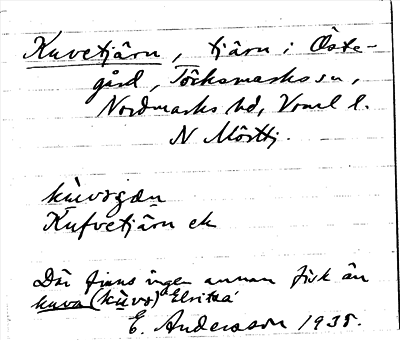 Kuvetjärn, tjärn i Öste-
gård, Töcksmarks sn,
Nordmarks hd, Vrml l.
N Mörttj.
kùvɘgæn
Kufvetjärn ek
Där finns ingen annan fisk än
kuva (kùvɘ) Elritsa
E. Andersson 1935.